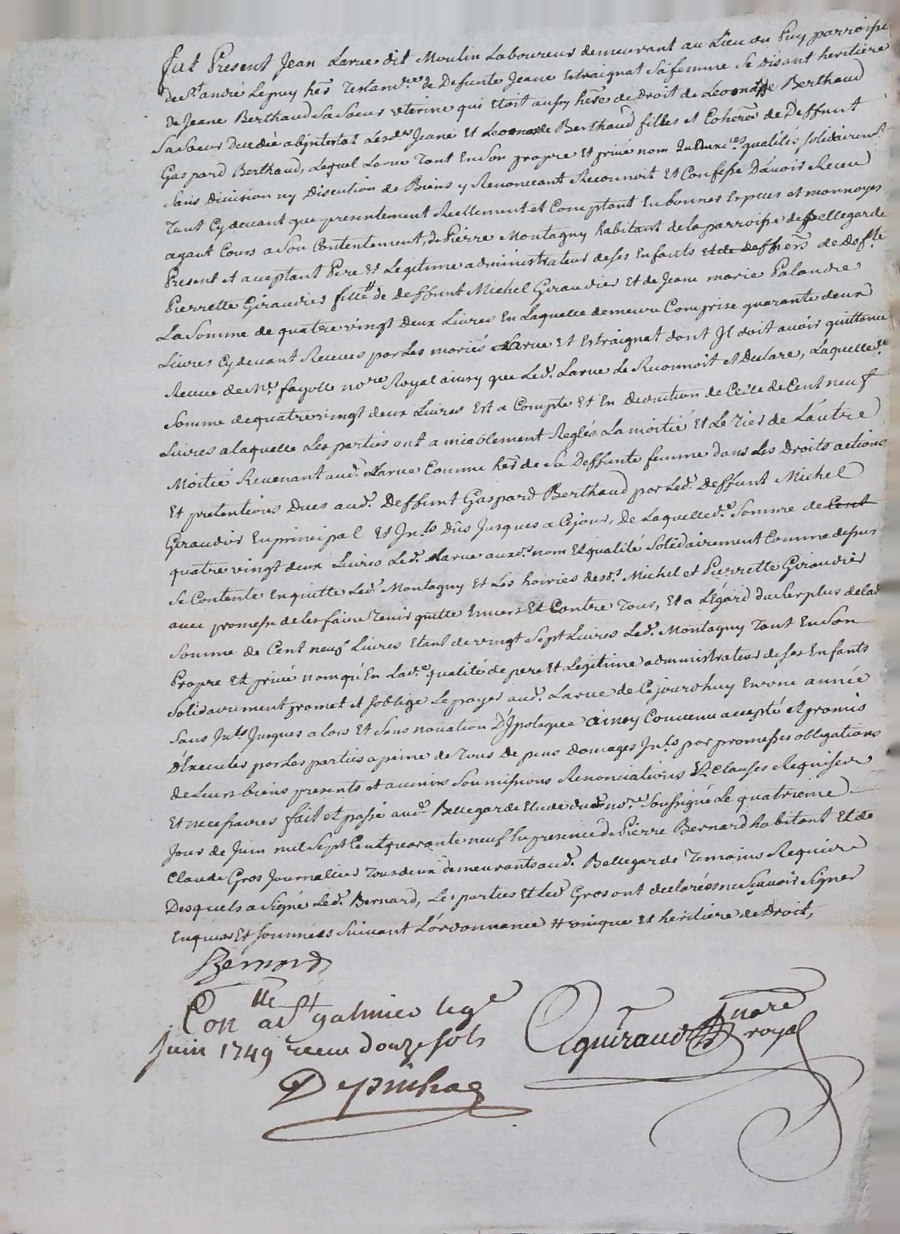 fut Present Jean Larue dit Moulin Laboureur demeurant au Lieu du Puy parroisse
de St. andré Lepuy hers. Testamre. de Defunte Jeane Estraignat Sa femme Se disant heritière
de Jeane Berthaud Sa Soeur uterine qui Etoit aussy here. de Droit de Leonade # Berthaud
Sa Soeur Decedée abjntestat Lesdes. Jeane Et Leonade Berthaud filles et Cohere. de Deffunt
Gaspard Berthaud, Lequel Larue Tant En Son propre et privé nom qualités Solidairemt.
Sans Division ny Discution de Biens y Renoncant Reconnoit Et Confesse D'avoir Receu
Tant Cy devant que presentement Reellement et Comptant En bonnes Especes et monnoyes
ayant Cours a Son Contentement, de Pierre Montagny habitant de la parroisse de Bellegarde
Present et acceptant Pere Et Legitime administrateur de ses Enfants de Deffte.
Pierrette Giraudier fille de deffunt Michel Giraudier Et de Jeane marie Palandre
La Somme de quatre vingt Deux Livres En Laquelle demeure Comprise quarante deux
Livres Cy devant Receues par Les mariés Larue Et Estraignat dont Jl doit avoir quittance
Receue de Me. fayolle nore. Royal ainsy que Led. Larue Le Reconnoit et Declare, Laquelle de.
Somme de quatre vingt deux Livres Est a Compte Et En deduction de Celle de Cent neuf
Livres a laquelle Les parties ont amiablement Reglés La moitié et Le Tier de Lautre
Moitié Revenant aud. Larue Comme her. de Sa Deffunte femme dans Les Droits actions
Et pretentions Dues aud. Deffunt Gaspard Berthaud par Led. Deffunt Michel
Giraudier En principal Et Jnts. Dûs Jusques a Cejour, De Laquelle de. Somme de Cent
quatre vingt deux Livres Led. Larue auxd. nom Et qualité Solidairement Comme dessus
Se Contente Enquitte Led. Montagny Et Les hoiries desd. Michel et Pierrette Giraudier
avec promesse de les faire Tenir quitte Envers Et Contre Tous, Et a L'égard du Surplus de lad.
Somme de Cent neuf Livres Etant de vingt Sept Livres Led. Montagny Tant En Son
Propre Et privé nom qu'En Lad. qualité de pere Et Legitime administrateur de Ses Enfants
Solidairement promet et soblige Le payer aud. Larue de Cejourdhuy En une année
Sans Jnts. Jusques alors Et Sans novation D'Jpoteque ainsy Convenu accepté et promis
D'Executer par Les parties a peine de Tous depens domages Jnts. par promesses obligations
de Leurs biens presents et avenirs Soumissions Renonciations & Clauses Requises
Et necessaires fait et passé aud. Bellegarde Etude du nore. Soussigné Le quatrieme
Jour de Juin mil Sept Cent quarante neuf En presence de Pierre Bernard habitant Et de
Claude Gros Journallier Tous deux demeurants aud. Bellegarde Temoins Requis
Desquels a Signé Led. Bernard, Les parties Et Led. Gros ont declarés ne Sçavoir Signer
Enquis Et Sommés Suivant L'ordonnance # unique et heritière de Droit,
Bernard
Conlle. a St. galmier le 9e
Juin 1749 receu douze sols
nore
royal